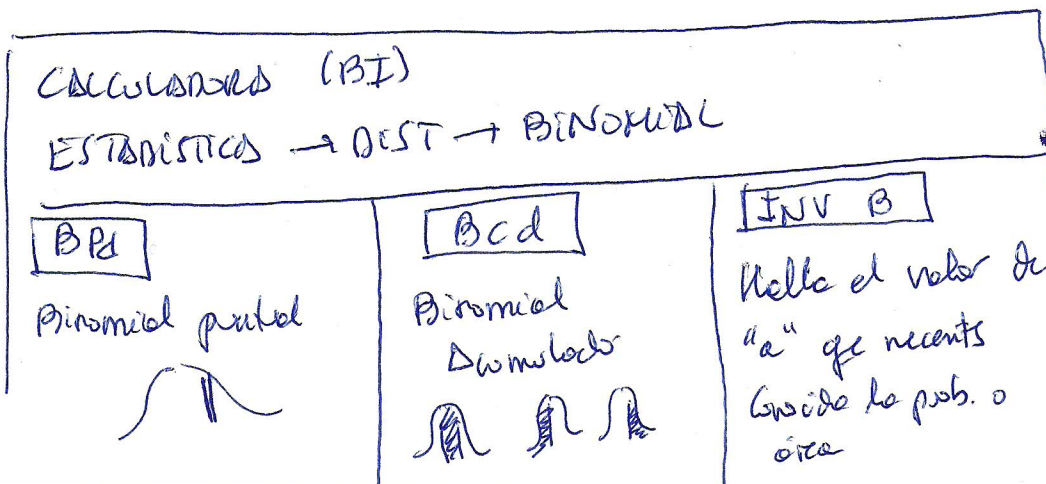 CALCULADORA (BI)
ESTADÍSTICA → DIST → BINOMIAL
BPd
Binomial puntual
Bcd
Binomial
Acumulado
INV B
Halla el valor de
"a" qe necesito
Conocida la prob. o
área